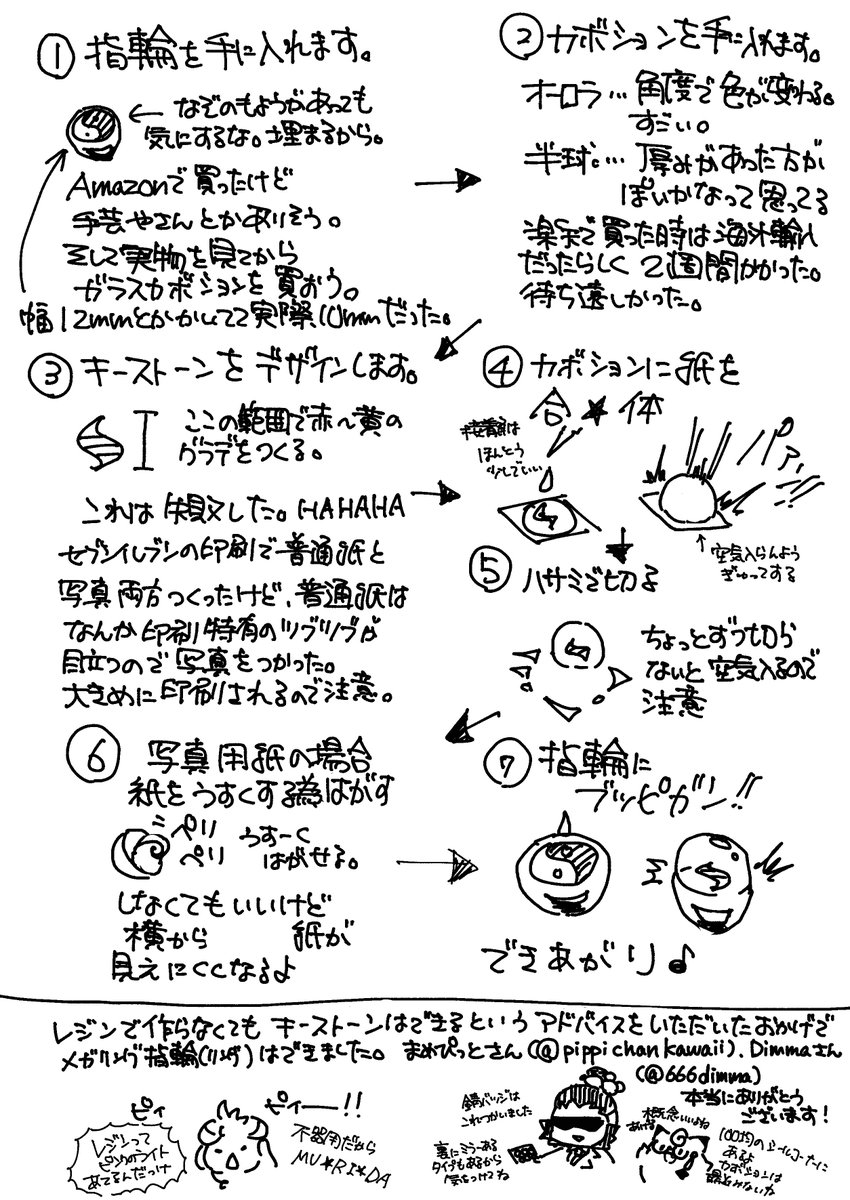 ① 指輪を手に入れます。
← なぞのもようがあっても
気にするな。埋まるから。
Amazonで買ったけど
手芸やさんとかありそう。
そして実物を見てから
ガラスカボションを買おう。
幅12mmとかかいてて実際10mmだった。
② カボションを手に入れます。
オーロラ…角度で色が変わる。
すごい。
半球…厚みがあった方が
ぽいかなって思ってる
楽天で買った時は海外輸入
だったらしく2週間かかった。
待ち遠しかった。
③ キーストーンをデザインします。
ここの範囲で赤〜黄の
グラデをつくる。
これは失敗した。HAHAHA
セブンイレブンの印刷で普通紙と
写真両方つくったけど、普通紙は
なんか印刷特有のツブツブが
目立つので写真をつかった。
大きめに印刷されるので注意。
④ カボションに紙を
合★体
接着剤は
ほんとう
少しでいい
パァン!!
↑
空気入らんよう
ぎゅってする
⑤ ハサミで切る
ちょっとずつ切ら
ないと空気入るので
注意
⑥ 写真用紙の場合
紙をうすくする為はがす
ペリ
ペリ
うすーく
はがせる。
しなくてもいいけど
横から 紙が
見えにくくなるよ
⑦ 指輪に
ブッピガン!!
できあがり♪
レジンで作らなくてもキーストーンはできるというアドバイスをいただいたおかげで
メガリング指輪(リング)はできました。まめぴっとさん(@pippichankawaii)、Dimmaさん
(@666dimma)
本当にありがとう
ございます!
ピィ
ピィー!!
レジンって
ピンクのライト
あてるんだっけ
不器用だから
MU★RI★DA
缶バッジは
これつかいました
裏にミラーある
タイプもあるから
気をつけてね
概念いいよね
100均のシールコーナーに
あるよ
カボションは